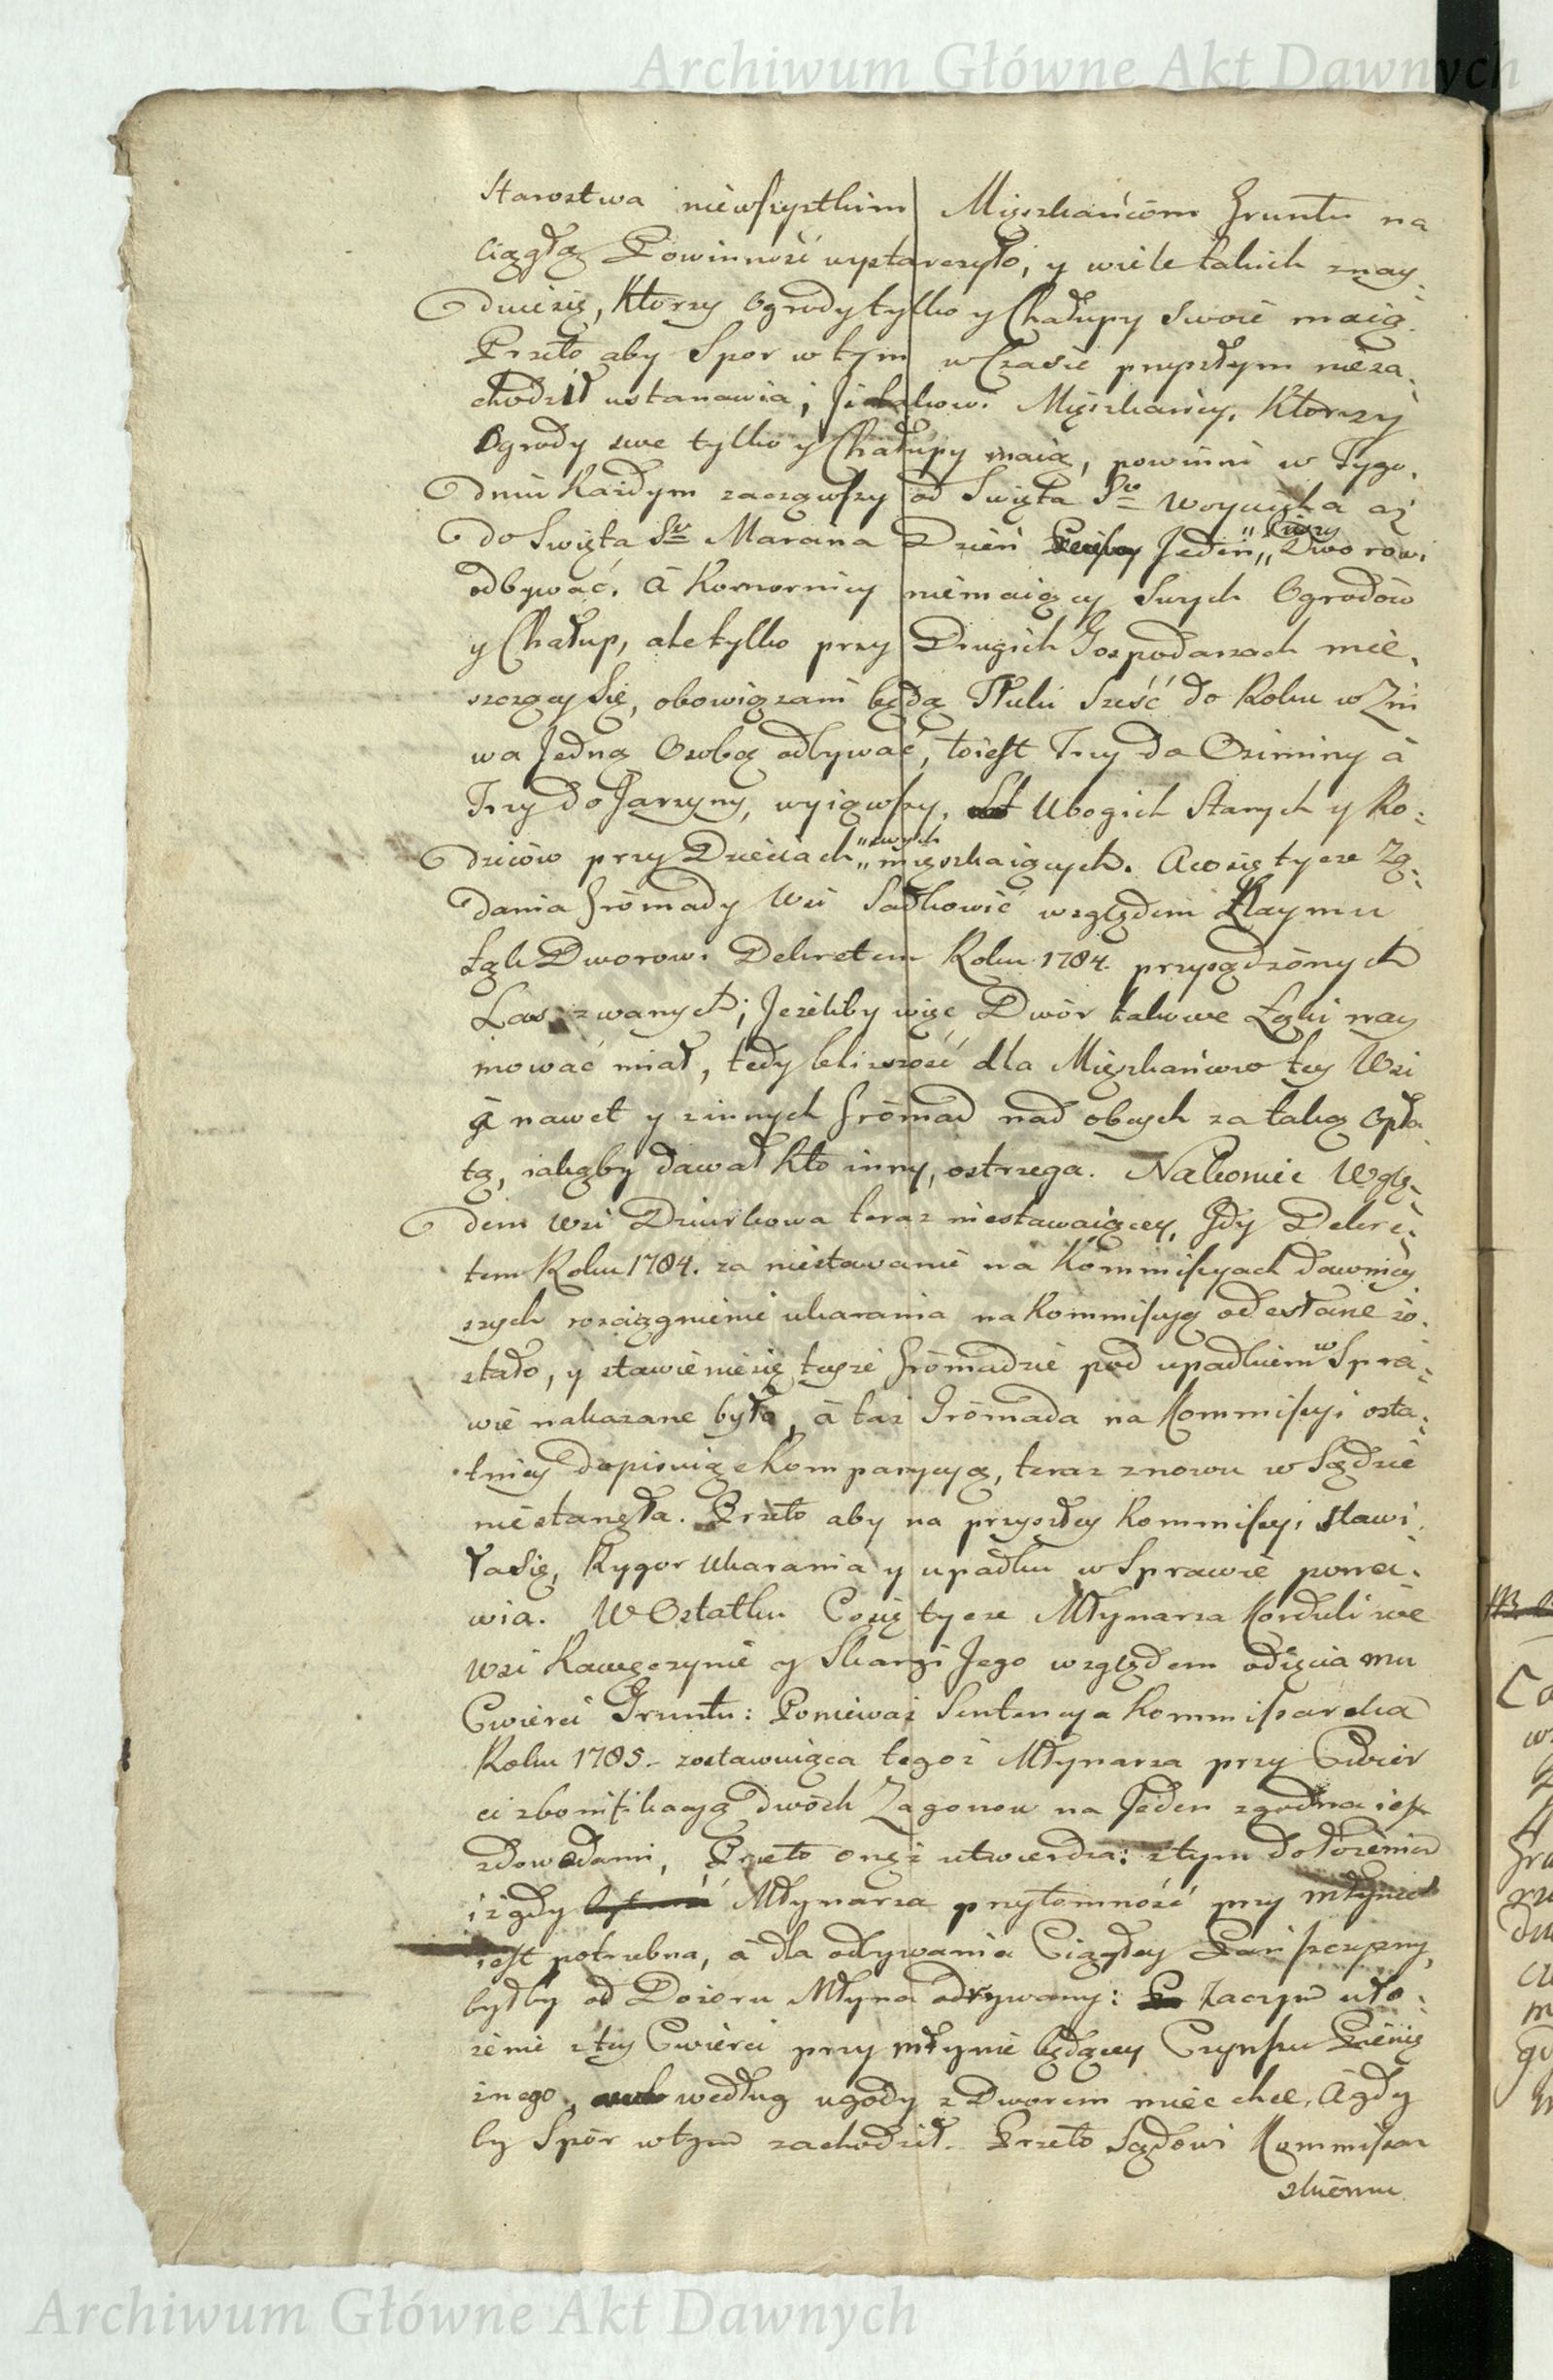 Archiwum Główne Akt Dawnych
Starostwa niewszystkim Mięszkańcóm Gruntu na
Ciągłą Powinność wystarczyło, y wiele takich znay¸
duie się, Ktorzy Ogrody tylko y Chałupy Swoie maią.
Przeto aby Spor w tym w Czasie przyszłym nieza¸
chodził ustanawia, Ji takowi Mięszkańcy, Ktorzy
Ogrody swe tylko y Chałupy maią, powinni w Tygo¸
dniu Każdym zacząwszy od Swięta So Woyciecha aż
do Swięta So Marcina Dzień Jeden „Pieszy„ Dworowi
odbywać. à Komornicy niemaiący Swych Ogrodów
y Chałup, ale tylko przy Drugich Gospodarzach mie¸
szczący Się, obowiązani będą Tłuki Sześć do Roku w Zni
wa Jedną Osobą odbywać, toiest Trzy do Oziminy à
Trzy do Jarzyny, wyiąwszy, Ubogich Starych y Ro¸
dziców przy Dzieciach „swych„ mięszkaiących. A co się tycze Zą¸
dania Gromady Wsi Sadkowić względem Naymu
Łąk Dworowi Dekretem Roku 1784. przysądzónych
Las zwanych; Jeżeliby więc Dwór takowe Łąki nay
mować miał, tedy bliższość dla Mięszkańców tey Wsi
à nawet y zinnych Grómad nad obcych za taką Opła
tą, iakąby dawał kto inny, ostrzega. Nakoniec Wzglę¸
dem wsi Dziurkowa teraz niestawaiącey, Gdy Dekre¸
tem Roku 1784. za niestawanie na Kommissyach dawniey
szych rozciągnienie ukarania na Kommissyą odesłane zo¸
stało, y stawienie się teyże Grómadzie pod upadkiem w Spra¸
wie nakazane było, à taż Grómada na Kommissyi osta¸
tniey dopisuiąc Komparycyą, teraz znowu w Sądzie
niestanęła. Przeto aby na przyszłey Kommissyi stawi¸
ła się, Rygor Ukarania y upadku w Sprawie pona¸
wia. W Ostatku Co się tycze Młynarza Korduli we
wsi Kawęczynie y Skargi Jego względem odięcia mu
Cwierci Gruntu: Ponieważ Sentencya Kommissarska
Roku 1785. zostawuiąca tegoż Młynarza przy Cwier
ci zbonifikacyą dwóch Zagonow na Jeden zgodna iest
zdowodami, Przeto onęż utwierdza: z tym dołożeniem
iż gdy Młynarza przytomność przy młynie
iest potrzebna, à dla odbywania Ciągłey Pańszczyzny,
byłby od Dozoru Młyna odrywany: Zaczym uło¸
żenie z tey Cwierci przy młynie będącey Czynszu Pienię
żnego, według ugody z Dworem mieć chce, A gdy
by Spór w tym zachodził. Przeto Sądowi Kommissar
skiemu
Archiwum Główne Akt Dawnych